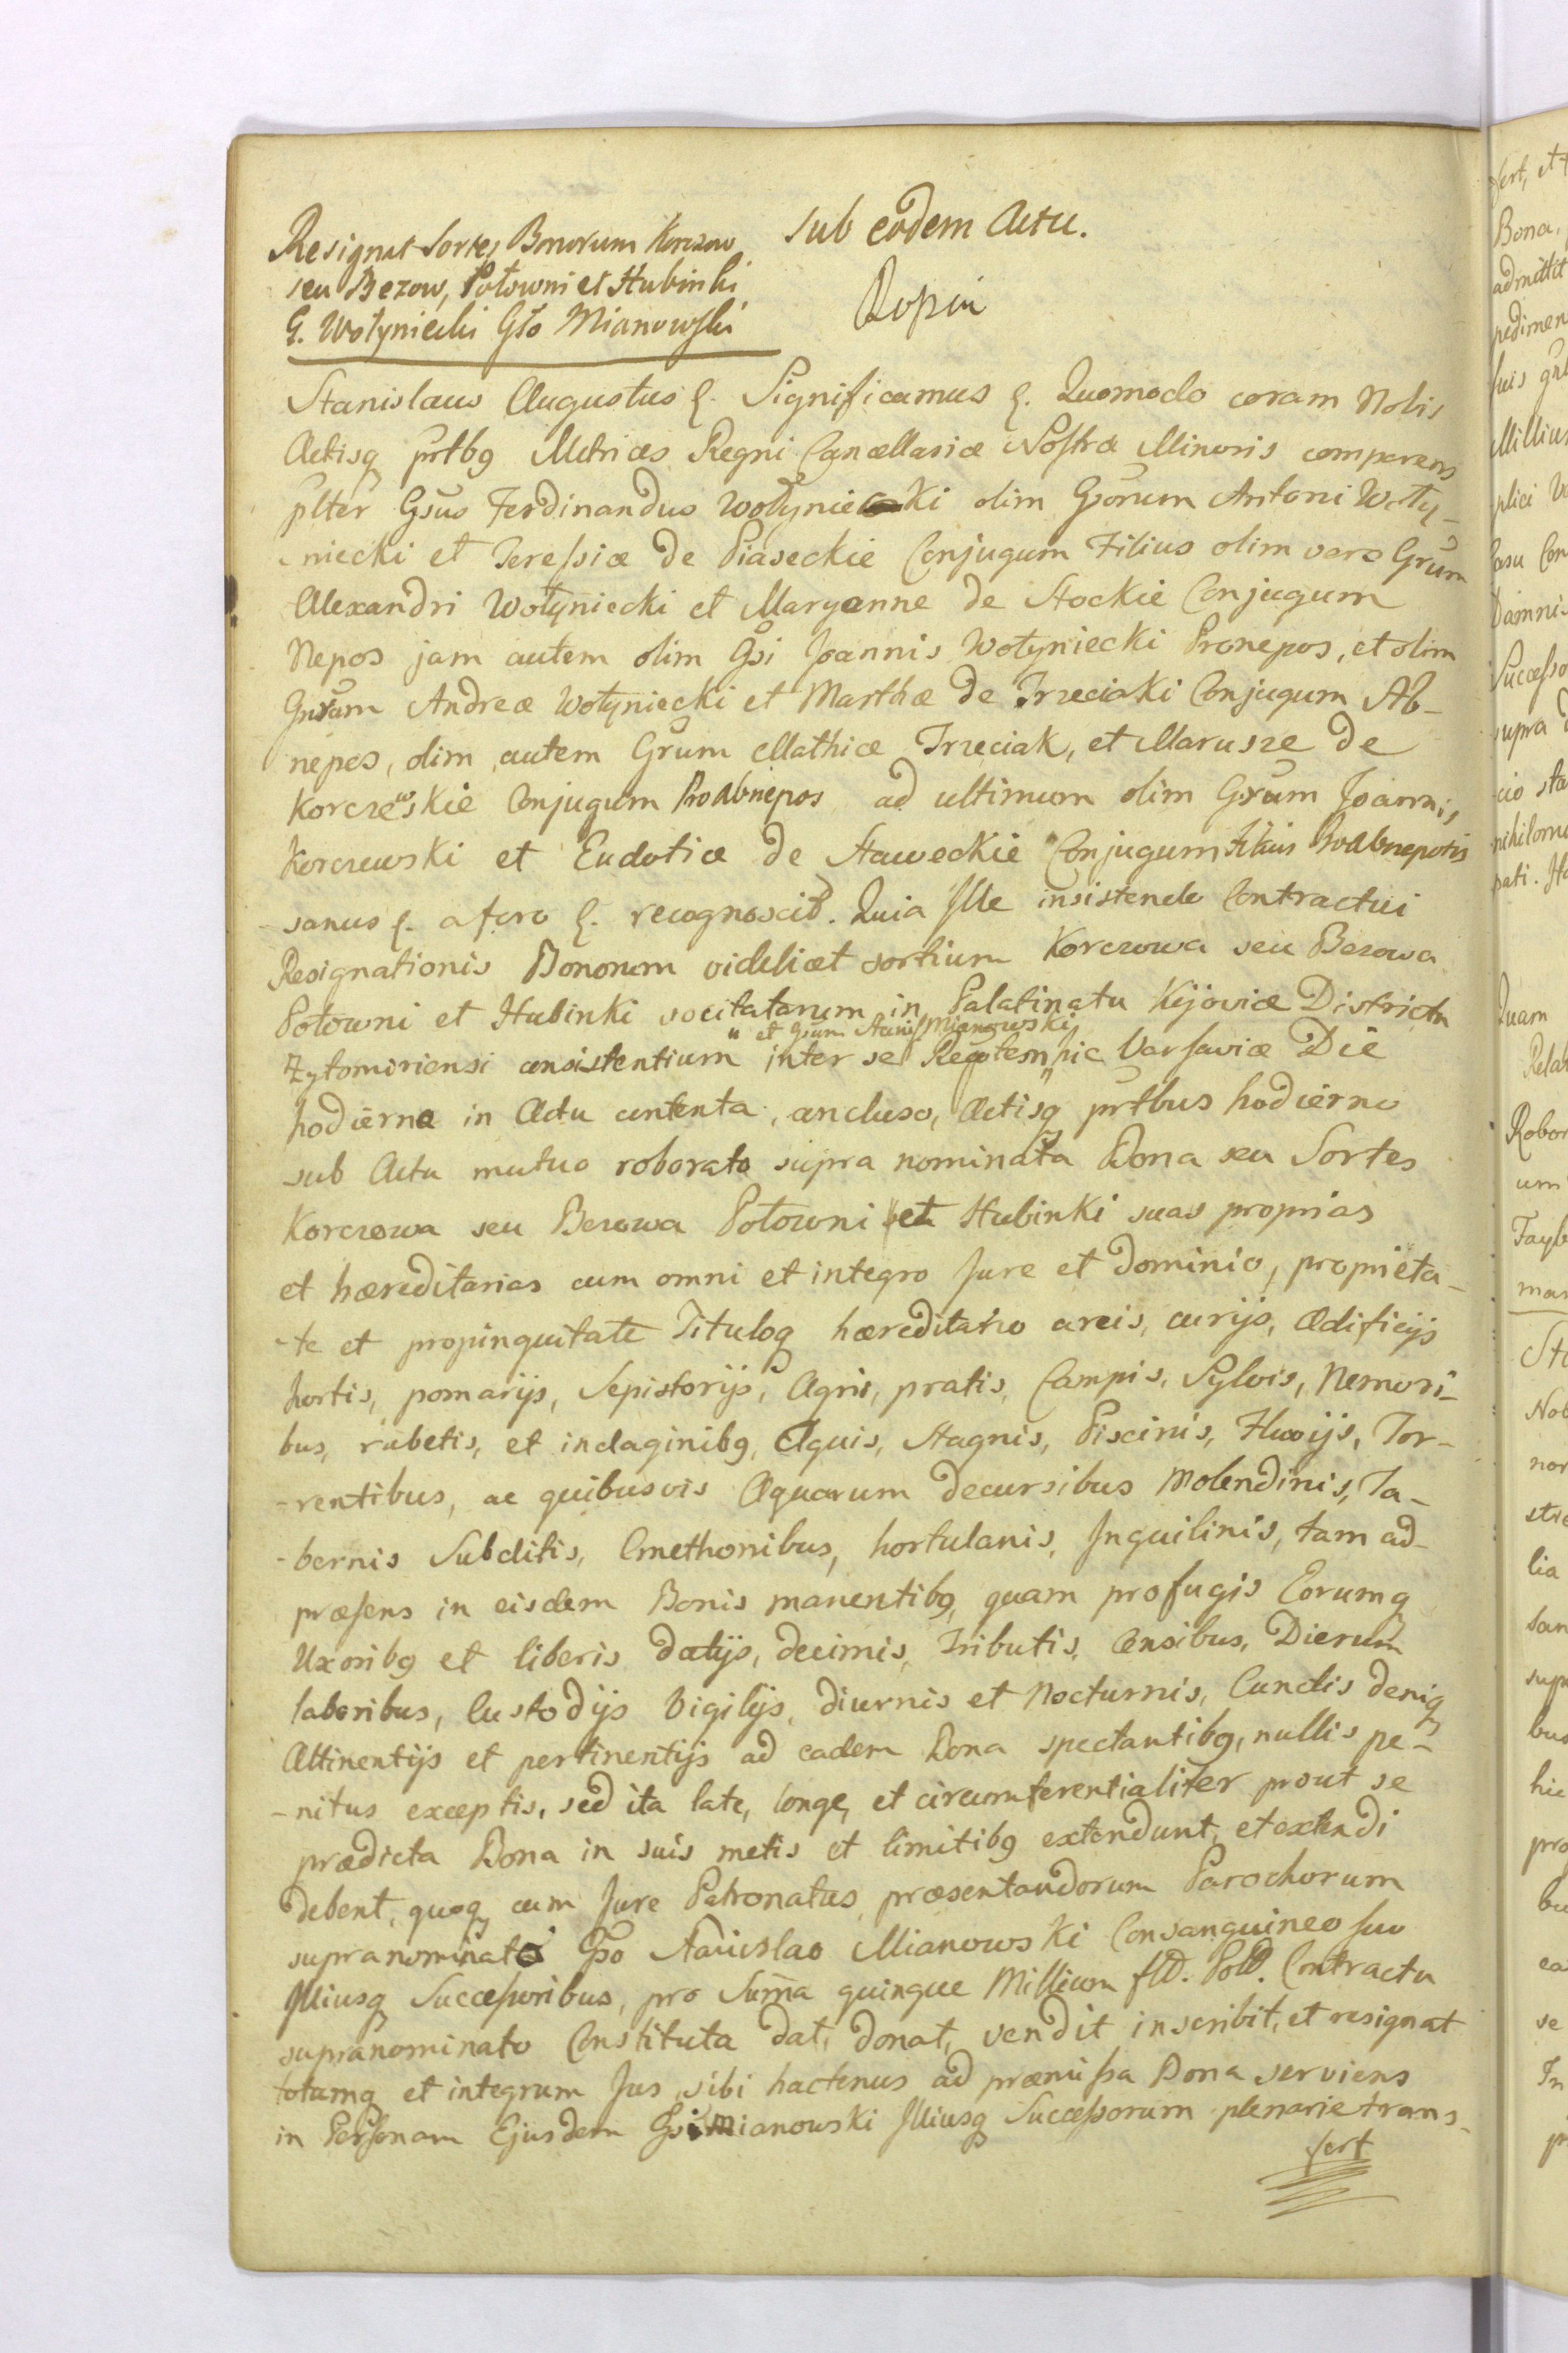 Resignat Sortes Bonorum Korczow
seu Bezow, Połowni et Hubinki
G. Wołyniecki Gło Mianowski
Sub eodem Actu.
Stanislaus Augustus &. Significamus &. Quomodo coram Nobis
Actisq prtbg Metrices Regni Cancellariæ Nostræ Minoris comparens
plter Gsus Ferdinandus Wołyniecki olim Gsorum Antoni Woły-
-niecki et Teressiæ de Piaseckie Conjugum Filius olim vero Grum
Alexandri Wołyniecki et Maryanne de Stockie Conjugum
Nepos jam autem olim Gsi Joannis Wołyniecki Pronepos, et olim
Grum Andreæ Wołyniecki et Marthæ de Trzeciaki Conjugum Ab-
nepos, olim autem Grum Mathiæ Trzeciak, et Marusze de
Korczewskie Conjugum Proabnepos ad ultimum olim Grum Joannis
Korczewski et Eudotiæ de Staweckie Conjugum Filius Proabnepotis
sanus &. a foro &. recognoscit. Quia Ille insistendo Contractui
Resignationis Bonorum videlicet sortium Korczowa seu Bezowa
Połowni et Hubinki vocitatarum in Palatinatu Kijoviæ Districtu
Zytomiriensi consistentium inter se Rectem " et Gsum Stanis Mianowski " hic Varsaviæ Die
hodierna in Actu contenta, concluso, Actisq prtbus hodierno
sub Actu mutuo roborato supra nominata Bona seu Sortes
Korczowa seu Bezowa Połowni et Hubinki suas proprias
et hæreditarias cum omni et integro Jure et Dominio, proprieta-
-te et propinquitate Tituloq hæreditario areis, curijs, Ædificijs
hortis, pomarijs, Sepistorijs, Agris, pratis, Campis, Sylvis, Nemori-
bus, rubetis, et indaginibg, Aquis, Stagnis, Piscinis, Fluvijs, Tor-
-rentibus, ac quibusvis Aquarum decursibus Molendinis, Ta-
-bernis Subditis, Cmethonibus, hortulanis, Inquilinis, tam ad-
præsens in eisdem Bonis manentibg, quam profugis Eorumq
Uxoribg et liberis datijs, decimis, Tributis, Censibus, Dierum
laboribus, Custodijs Vigilijs, diurnis et Nocturnis, Cunctis deniq
Attinentijs et pertinentijs ad eadem Bona spectantibg, nullis pe-
-nitus exceptis, sed ita late, longe, et circumferentialiter prout se
prædicta Bona in suis metis et limitibg extendunt, et extendi
debent, quoq cum Jure Patronatus præsentandorum Parochorum
supranominato Gso Stanislao Mianowski Consanguineo suo
Illiusq Successoribus, pro Suma quinque Millium fld. Pold. Contractu
supranominato Constituta dat, donat, vendit inscribit, et resignat
totumq et integrum Jus sibi hactenus ad præmissa Bona serviens
in Personam Ejusdem Gsi Mianowski Illiusq Successorum plenarie trans-
fert